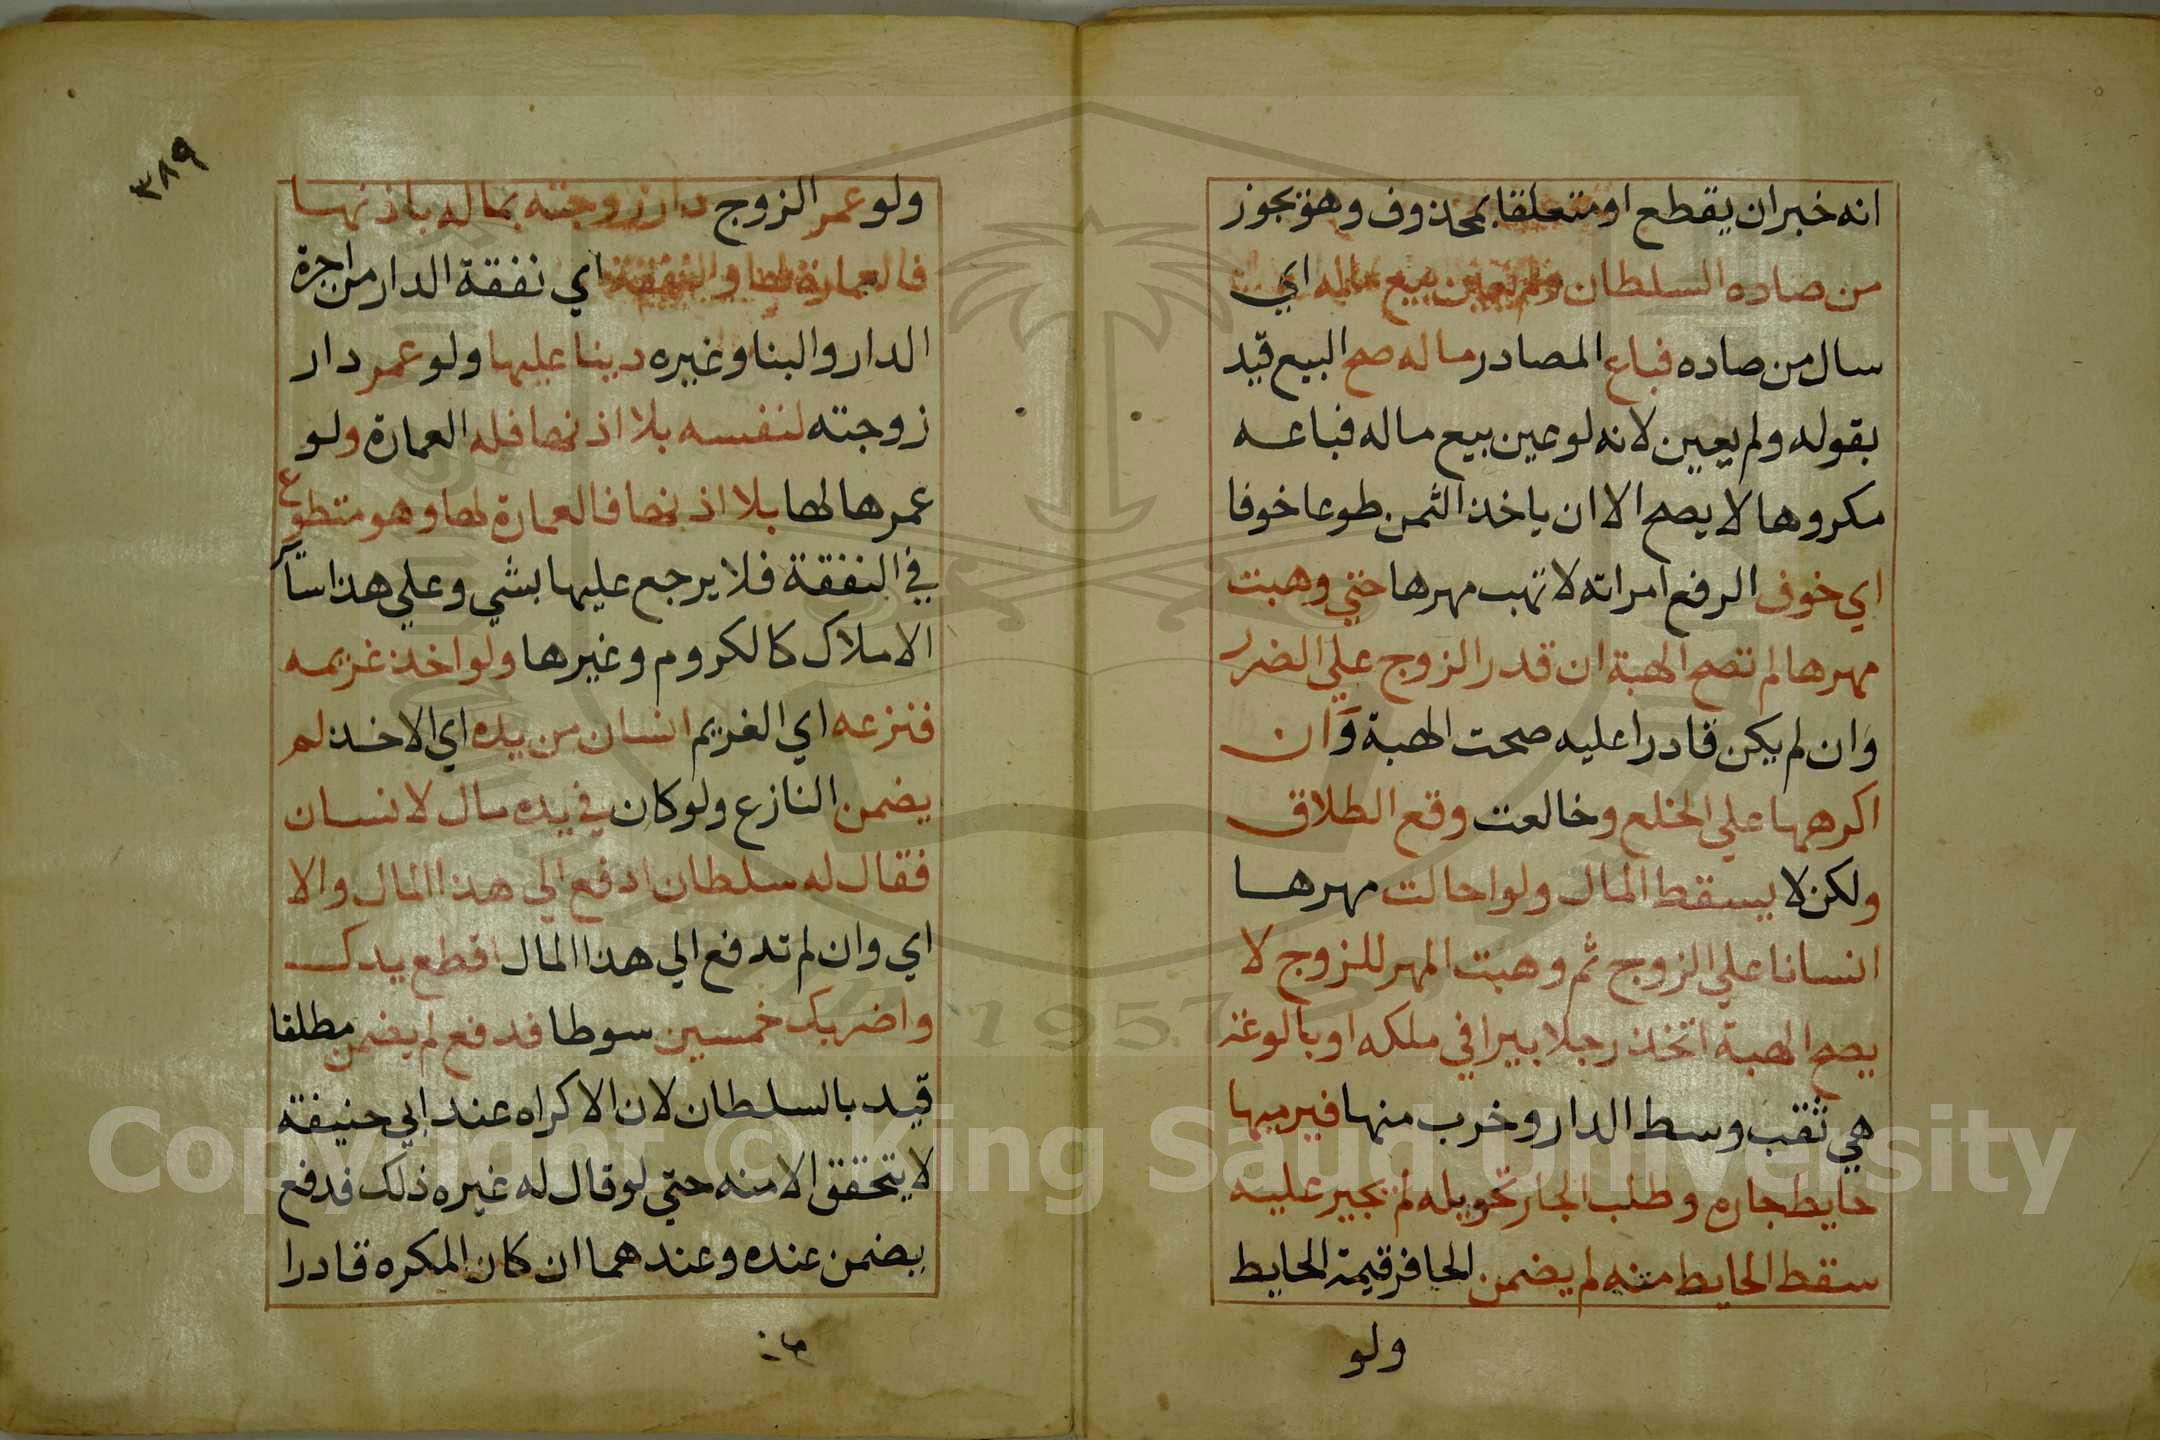 انه خبر ان يقطع او متعلقا بمحذوف وهو يجوز
من صاده السلطان ولم يعين بيع ماله اي
سال من صاده فباع المصادر ماله صح البيع قيد
بقوله ولم يعين لانه لو عين بيع ماله فباعه
مكروها لا يصح الا ان ياخذ الثمن طوعا خوفا
اي خوف الرفع امراته لا تهب مهرها حتي وهبت
مهرها لم تصح الهبة ان قدر الزوج علي الضرر
وان لم يكن قادرا عليه صحت الهبة وان
اكرهها علي الخلع وخالعت وقع الطلاق
ولكن لا يسقط المال ولو احالت مهرها
انسانا علي الزوج ثم وهبت المهر للزوج لا
يصح الهبة اتخذ رجلا بيرا في ملكه او بالوعة
هي ثقب وسط الدار وخرب منها فيرميها
حايط جاره وطلب الجار تحويله لم يجبر عليه
سقط الحايط منه لم يضمن الحافر قيمة الحايط
ولو
٣٨٩
ولو عمر الزوج دار زوجته بماله باذنها
فالعمارة لها والنفقة اي نفقة الدار من اجرة
الدار والبنا وغيره دينا عليها ولو عمر دار
زوجته لنفسه بلا اذنها فله العمارة ولو
عمرها لها بلا اذنها فالعمارة لها وهو متطوع
في النفقة فلا يرجع عليها بشي وعلي هذا ساير
الاملاك كالكروم وغيرها ولو اخذ غريمه
فنزعه اي الغريم انسان من يده اي الاخذ لم
يضمن النازع ولو كان في يده مال لانسان
فقال له سلطان ادفع الي هذا المال والا
اي وان لم تدفع الي هذا المال اقطع يدك
واضربك خمسين سوطا فدفع لم يضمن مطلقا
قيد بالسلطان لان الاكراه عند ابي حنيفة
لا يتحقق الا منه حتي لو قال له غيره ذلك فدفع
يضمن عنده وعندهما ان كان المكره قادرا
Copyright © King Saud University
1957